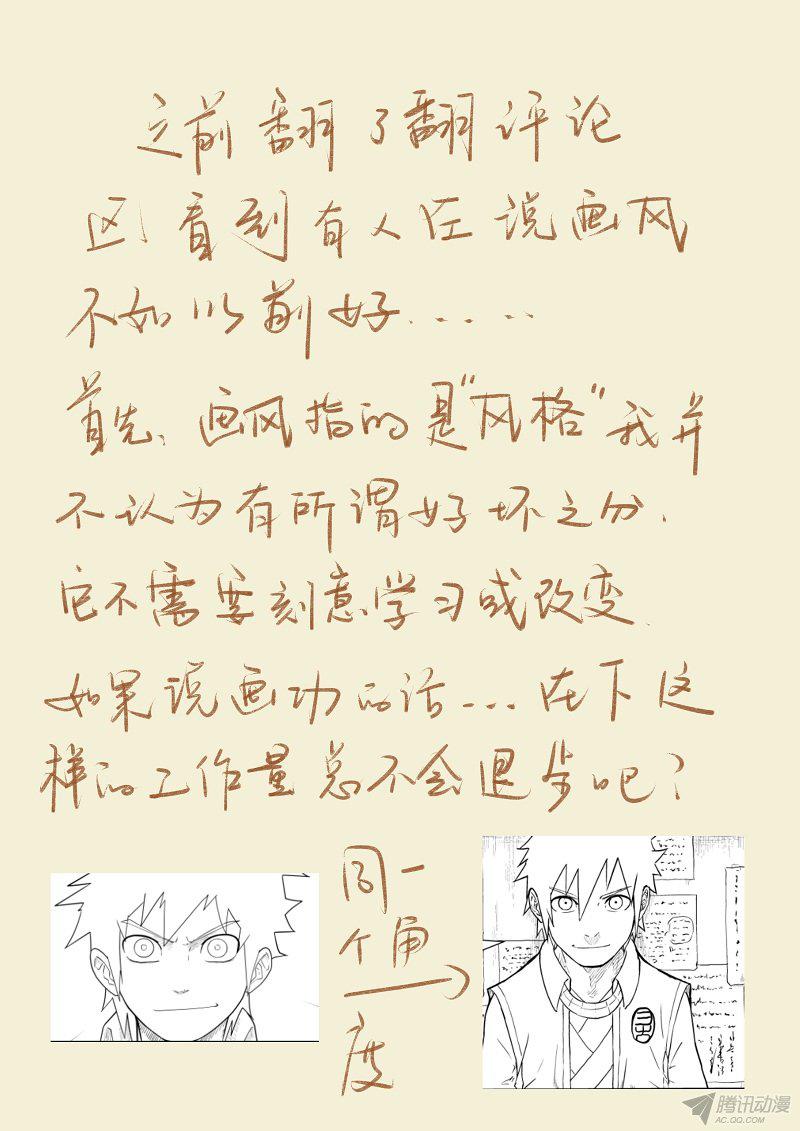 之前翻了翻评论
区，看到有人在说画风
不如以前好......
首先，画风指的是“风格”我并
不认为有所谓好坏之分，
它不需要刻意学习或改变.
如果说画功的话...在下这
样的工作量总不会退步吧？
同一
个角
度
腾讯动漫
AC.QQ.COM